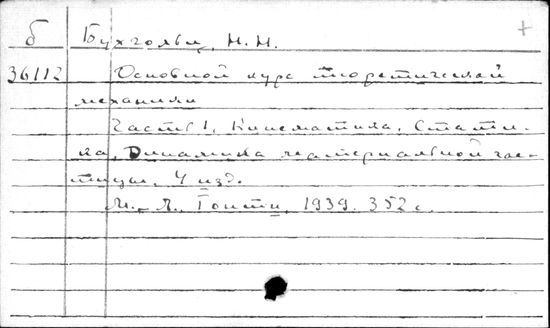 б Бухгольц, Н.Н. +
36112 Основной курс теоретической
механики
Часть 1, Кинематика, Стати-
ка, Динамика материальной час-
тицы, 4 изд.
М.-Л. Гонти, 1939. 352 с.